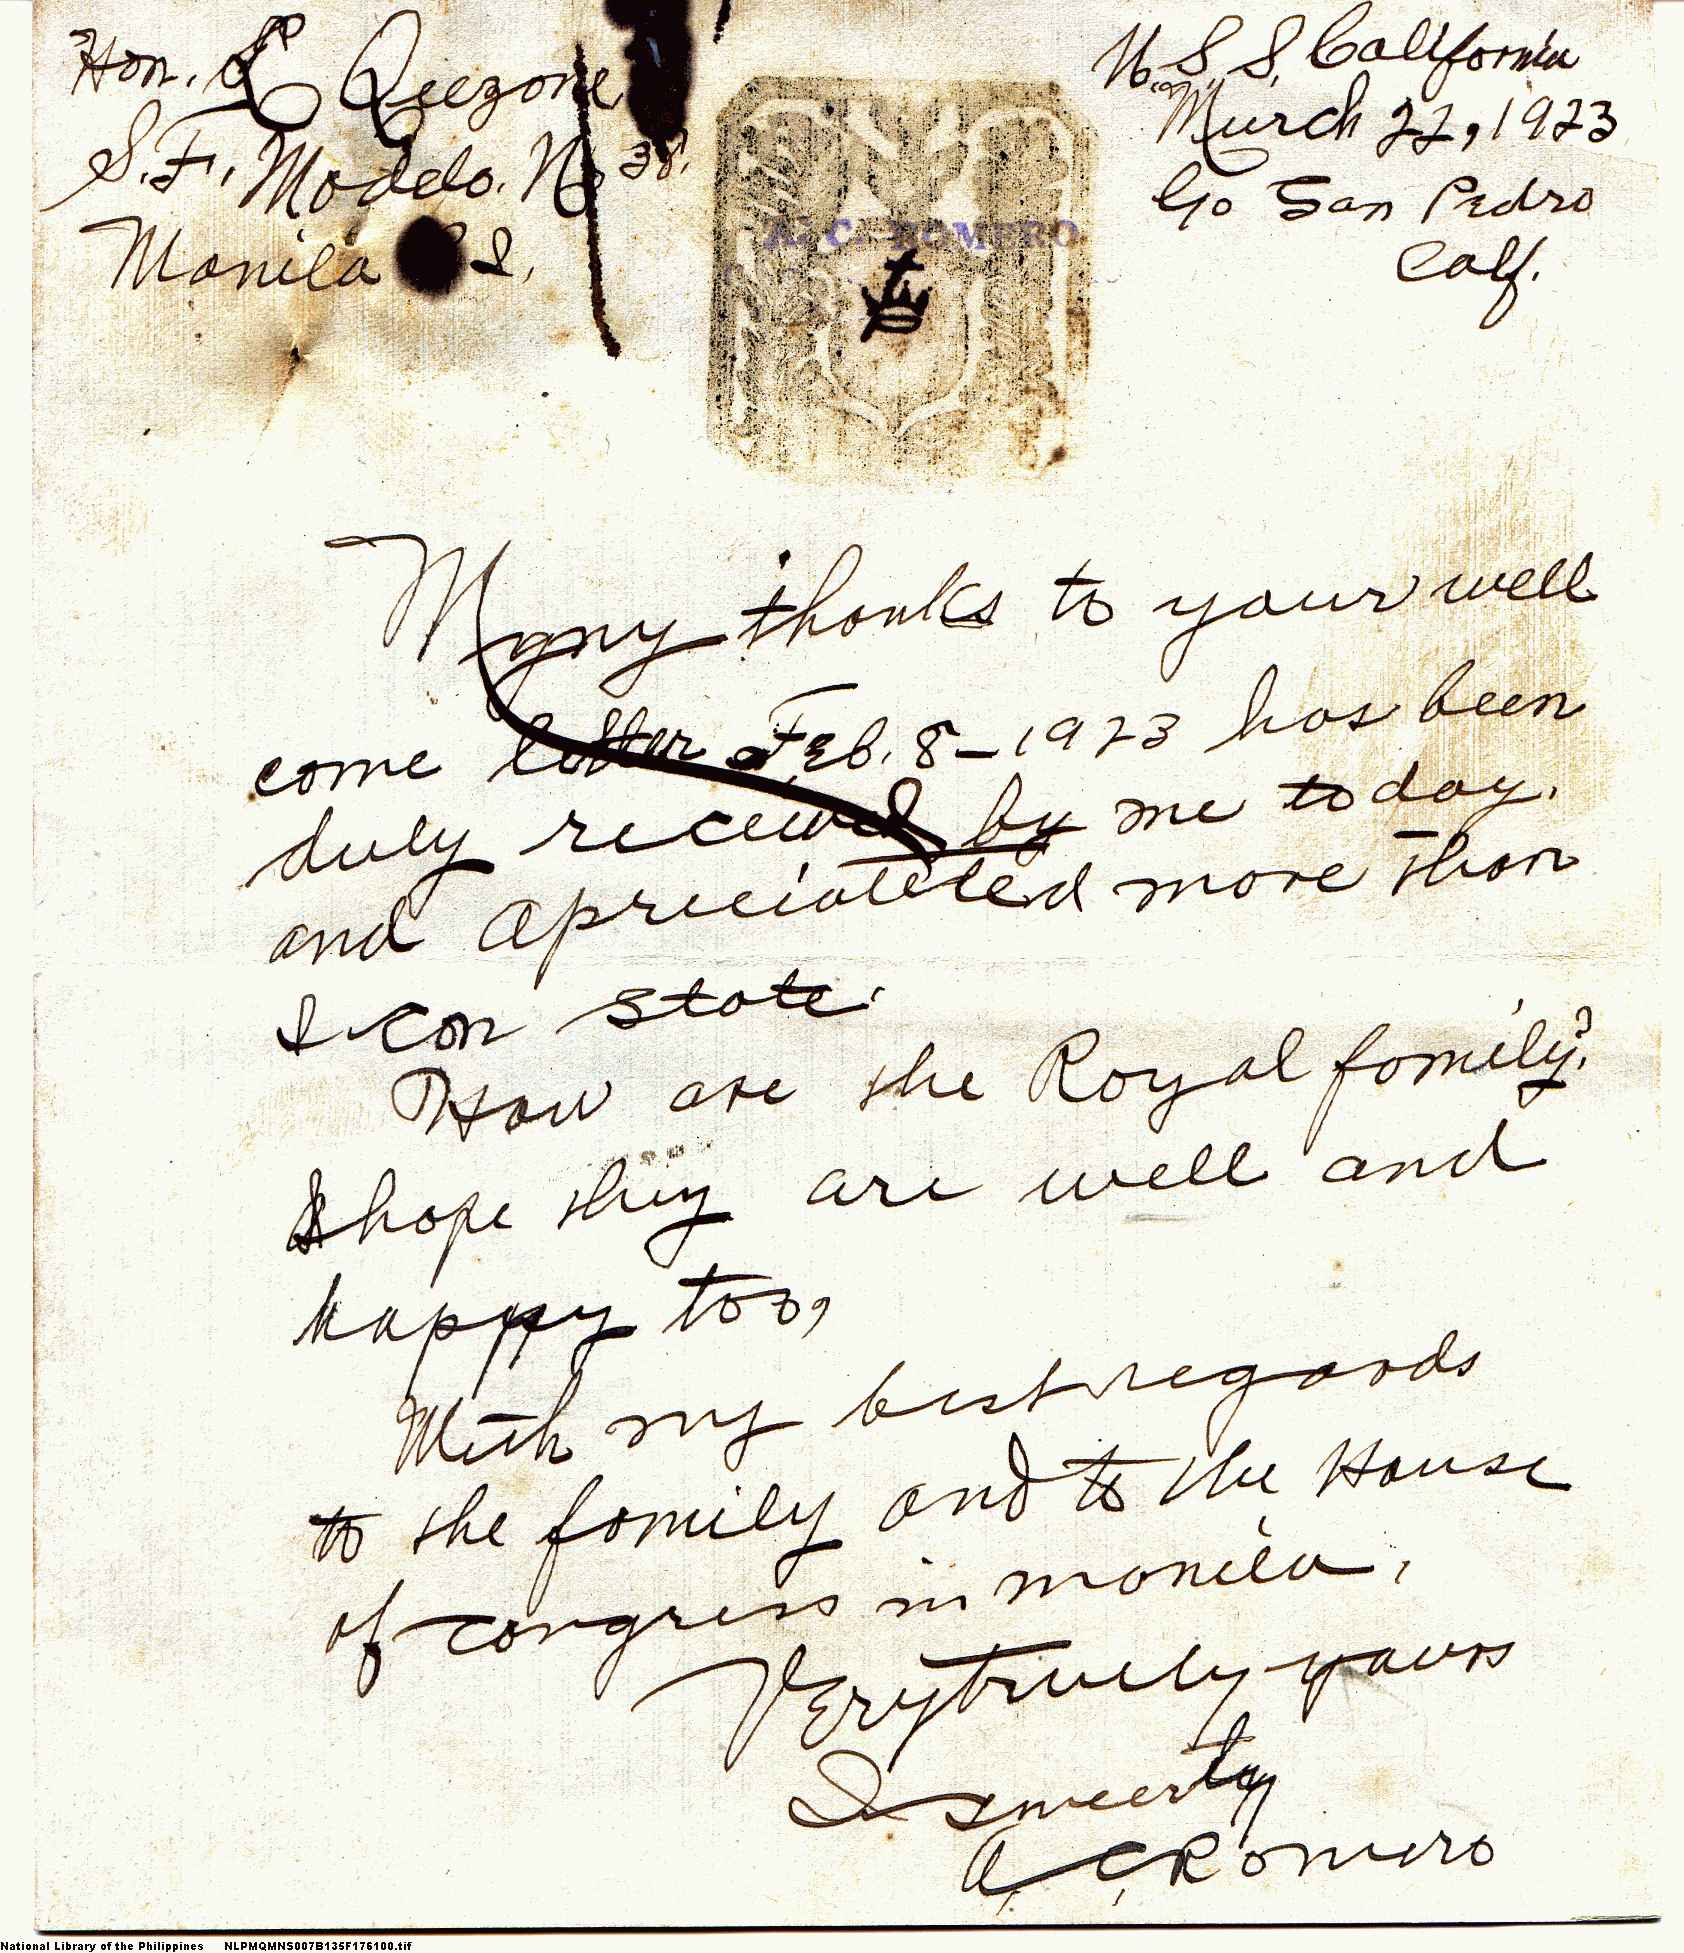 Hon. Quezone
S. F. Modelo. No 38.
Manila P I.
U. S. S. California
March 22, 1923
C/o San Pedro
Calf.
A. C. ROMERO
Many thanks to your well
come letter Feb. 8 - 1923 has been
duly received by me today.
and apreciateted more than
I can state.
How are the Royal family?
I hope they are well and
happy too,
With my best regards
to the family and to the House
of congress in manila.
Very truely yours
A. C. Romero
National Library of the Philippines NLPMQMNS007B135F176100.tif